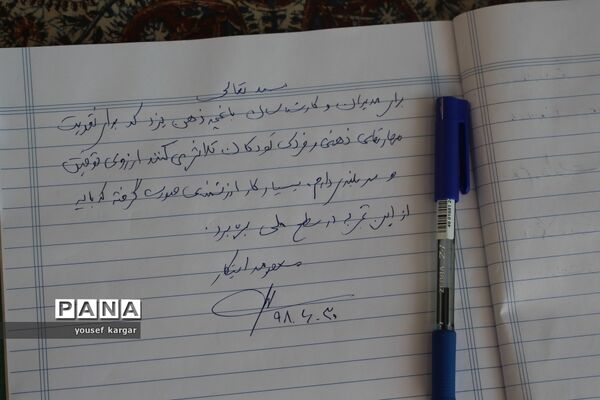 بسمه تعالی
برای مدیران و کارشناسان باغچه ذهن یزد که برای تقویت
مهارتهای ذهنی و فردی کودکان تلاش می کنند آرزوی توفیق
و سربلندی دارم. بسیار کار ارزشمندی صورت گرفته که باید
از این تجربه در سطح ملی بهره برد.
ابتکار
۹۸.۶.۳۰
PANA
yousef kargar